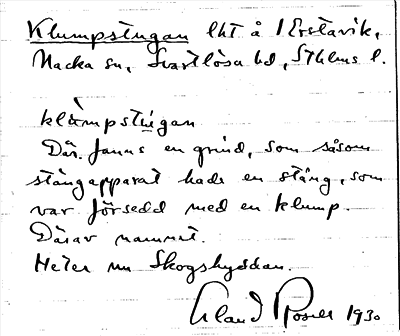 Klumpstugan lht å Erstavik,
Nacka sn, Svartlösa hd, Sthlms l.
klùmpstugan
Där fanns en grind, som såsom
stängapparat hade en stång, som
var försedd med en klump.
Därav namnet.
Heter nu Skogshyddan.
Erland Rosell 1930